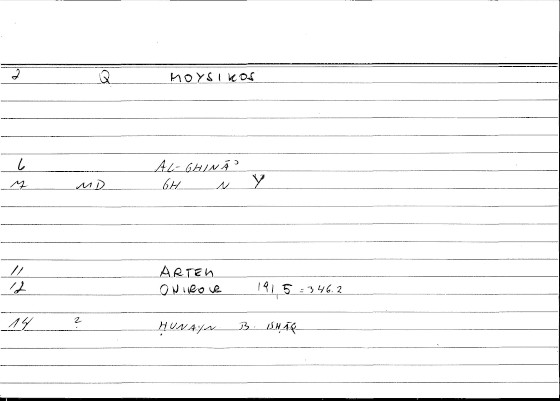 2 Q MOYSIKOS
6 AL-GHINĀʾ
M MD GH N Y
11 ARTEM
12 ONIROCR 191, 5 = 346.2
14 ? ḤUNAYN B. ISḤĀQ